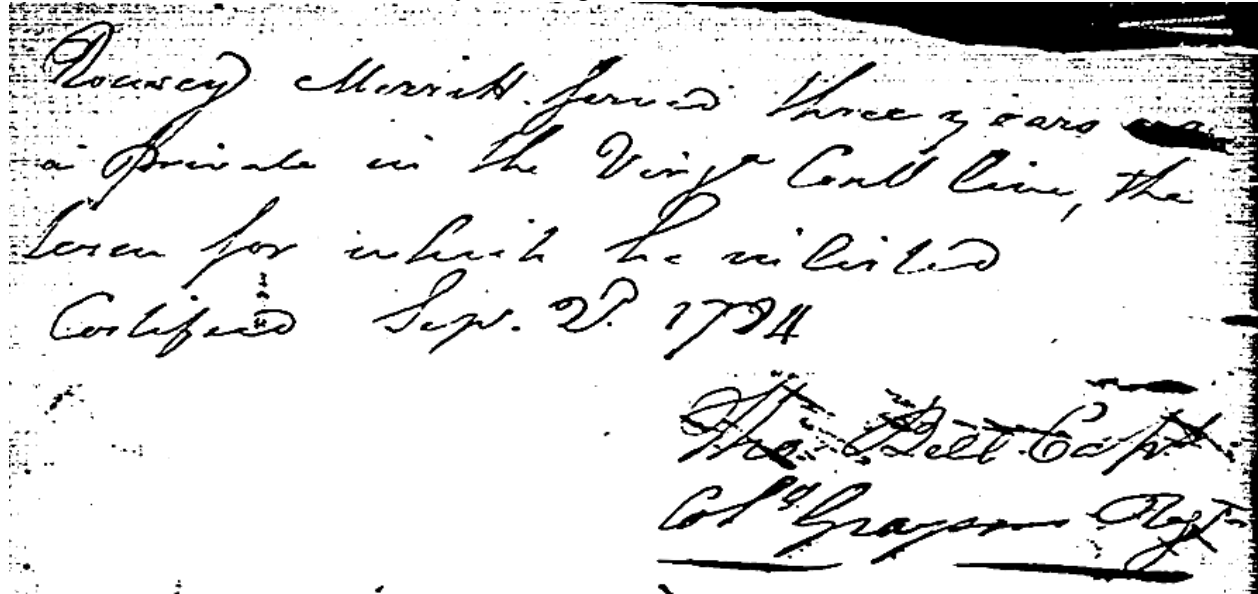 Rousey Merritt. served three years as
a private in the Virgᵃ Contl line, the
term for which he inlisted
Certified Sepr. 2d. 1784
Tho. Bell Capt
Colo Graysons Regt